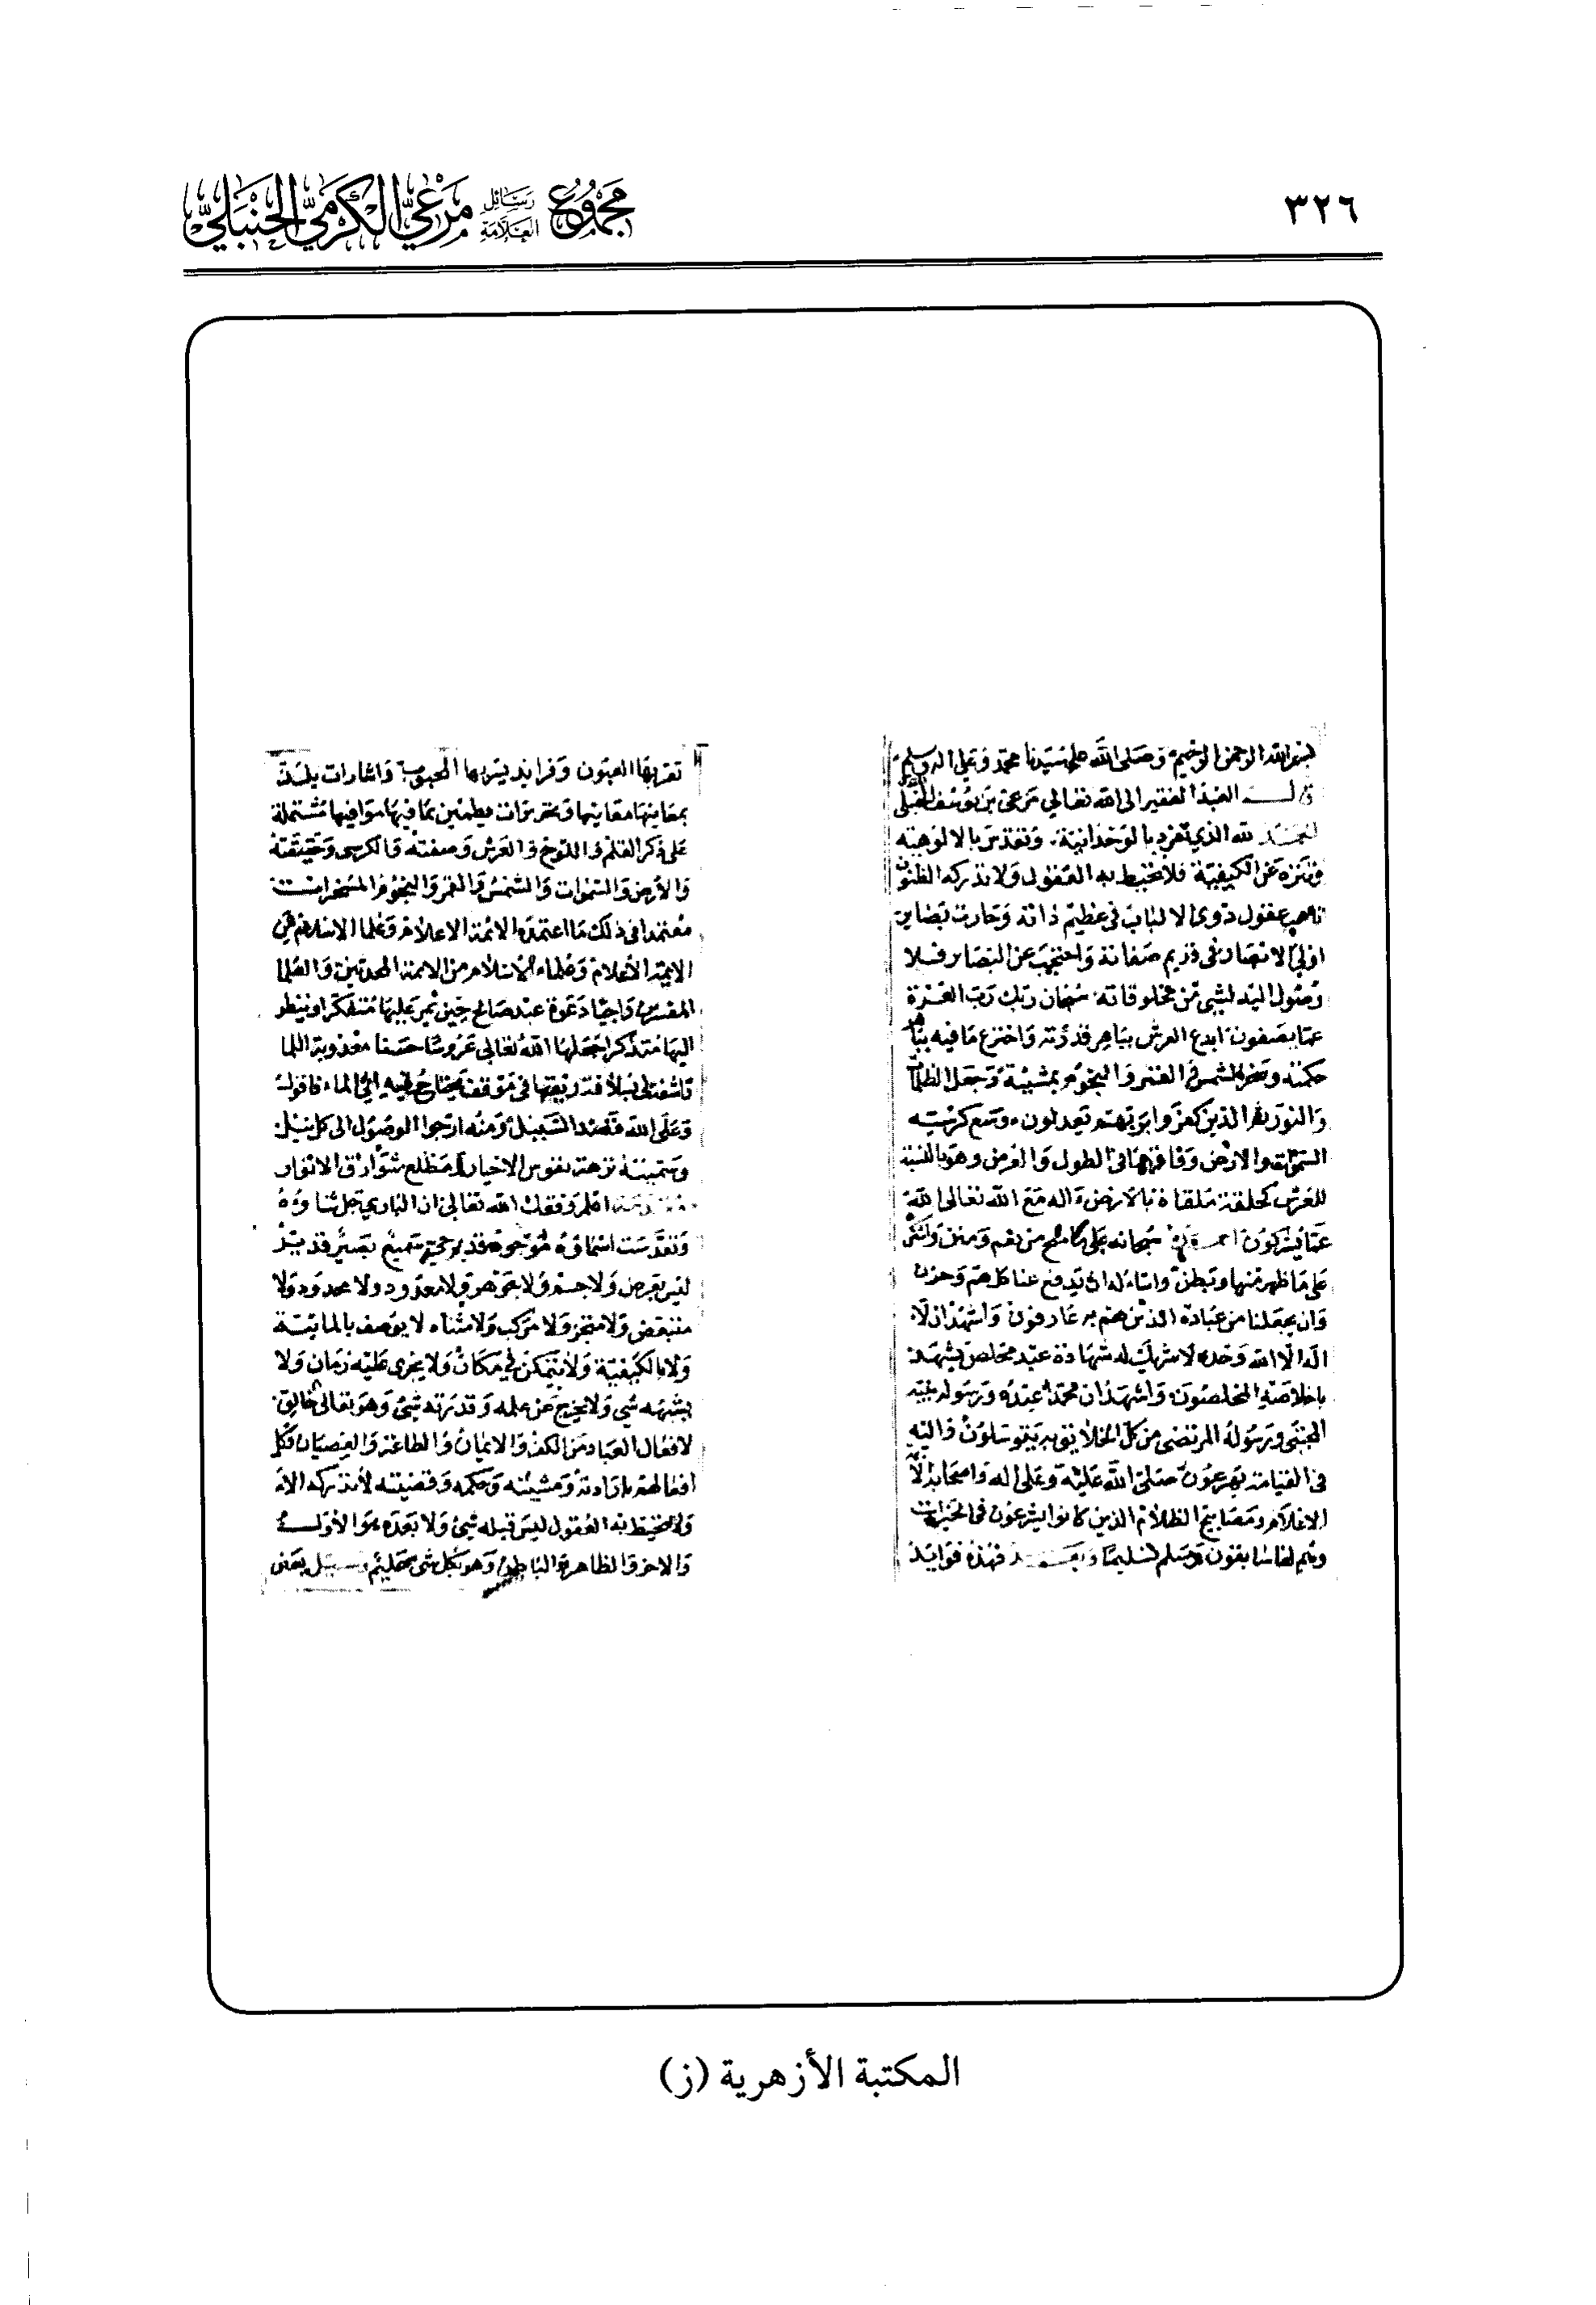 ٣٢٦
مجموع رسائل العلامة مرعي الكرمي الحنبلي
بسم الله الرحمن الرحيم وصلى الله على سيدنا محمد وعلى اله وسلم
قال العبد الفقير الى الله تعالي مرعي بن يوسف الحنبلي
الحمد لله الذي تفرد بالوحدانية وتقدس بالالوهية
وتنزه عن الكيفية فلا تحيط به العقول ولا تدركه الظنون
تاهت عقول ذوي الالباب في عظيم ذاته وحارت بصاير
اولي الابصار في قديم صفاته واحتجب عن البصاير فلا
وصول اليه لشي من مخلوقاته سبحان ربك رب العزة
عما يصفون ابدع العرش بباهر قدرته واخترع ما فيه
حكمته وسخر الشمس والقمر والنجوم بمشيئته وجعل الظلمات
والنور ثم الذين كفروا بربهم يعدلون وسع كرسيه
السموات والارض وفاقهما في الطول والعرض وهو بالنسبة
للعرش كحلقة ملقاة بالارض ءاله مع الله تعالى الله
عما يشركون احمده سبحانه على ما من نعم ومنن
على ما ظهر منها وبطن واساله ان يدفع عنا كل هم وحزن
وان يجعلنا من عباده الذين هم به عارفون واشهد ان لا
اله الا الله وحده لا شريك له شهادة عبد مخلص يشهد
باخلاصه المخلصون واشهد ان محمدا عبده ورسوله نبيه
المجتبى ورسوله المرتضى من كل الخلايق به يتوسلون واليه
في القيامة يهرعون صلى الله عليه وعلى اله واصحابه
الاعلام ومصابيح الظلام الذين كانوا يسرعون في الخيرات
وهم لها سابقون وسلم تسليما وبعد فهذه فوايد
تقر بها العيون وفرايد يسر بها المحبوب واشارات يلتذ
بمعانيها معانيها وتحريرات يطمئن بما فيها موافيها مشتملة
على ذكر القلم واللوح والعرش وصفته والكرسي وحقيقته
والارض والسموات والشمس والقمر والنجوم المسخرات
معتمدا في ذلك ما اعتمده الائمة الاعلام وعلما الاسلام
الايمة الاعلام وعلماء الاسلام من الائمة المحدثين والعلما
المفسرين راجيا دعوة عبد صالح حين يمر عليها متفكرا او ينظر
اليها متذكرا جعلها الله تعالى
وعلى الله قصد السبيل ومنه ارجوا الوصول الى كل نيل
وسميته نزهة نفوس الاخيار ومطلع شوارق الانوار
مقدمة اعلم وفقك الله تعالى ان الباري جل ثناوه
وتقدست اسماوه موجود قديم حي سميع بصير قدير
ليس بعرض ولا جسم ولا جوهر ولا معدود ولا محدود ولا
متبعض ولا متجز ولا مركب ولا متناه لا يوصف بالمايئة
ولا بالكيفية ولا يتمكن في مكان ولا يجري عليه زمان ولا
يشبهه شي ولا يخرج عن علمه وقدرته شي وهو تعالى خالق
لافعال العباد من الكفر والايمان والطاعة والعصيان وكل
افعالهم بارادته ومشيئته وحكمه وقضيته لا تدركه
ولا تحيط به العقول ليس قبله شي ولا بعده هو الاول
والاخر والظاهر والباطن وهو بكل شي عليم
المكتبة الأزهرية (ز)